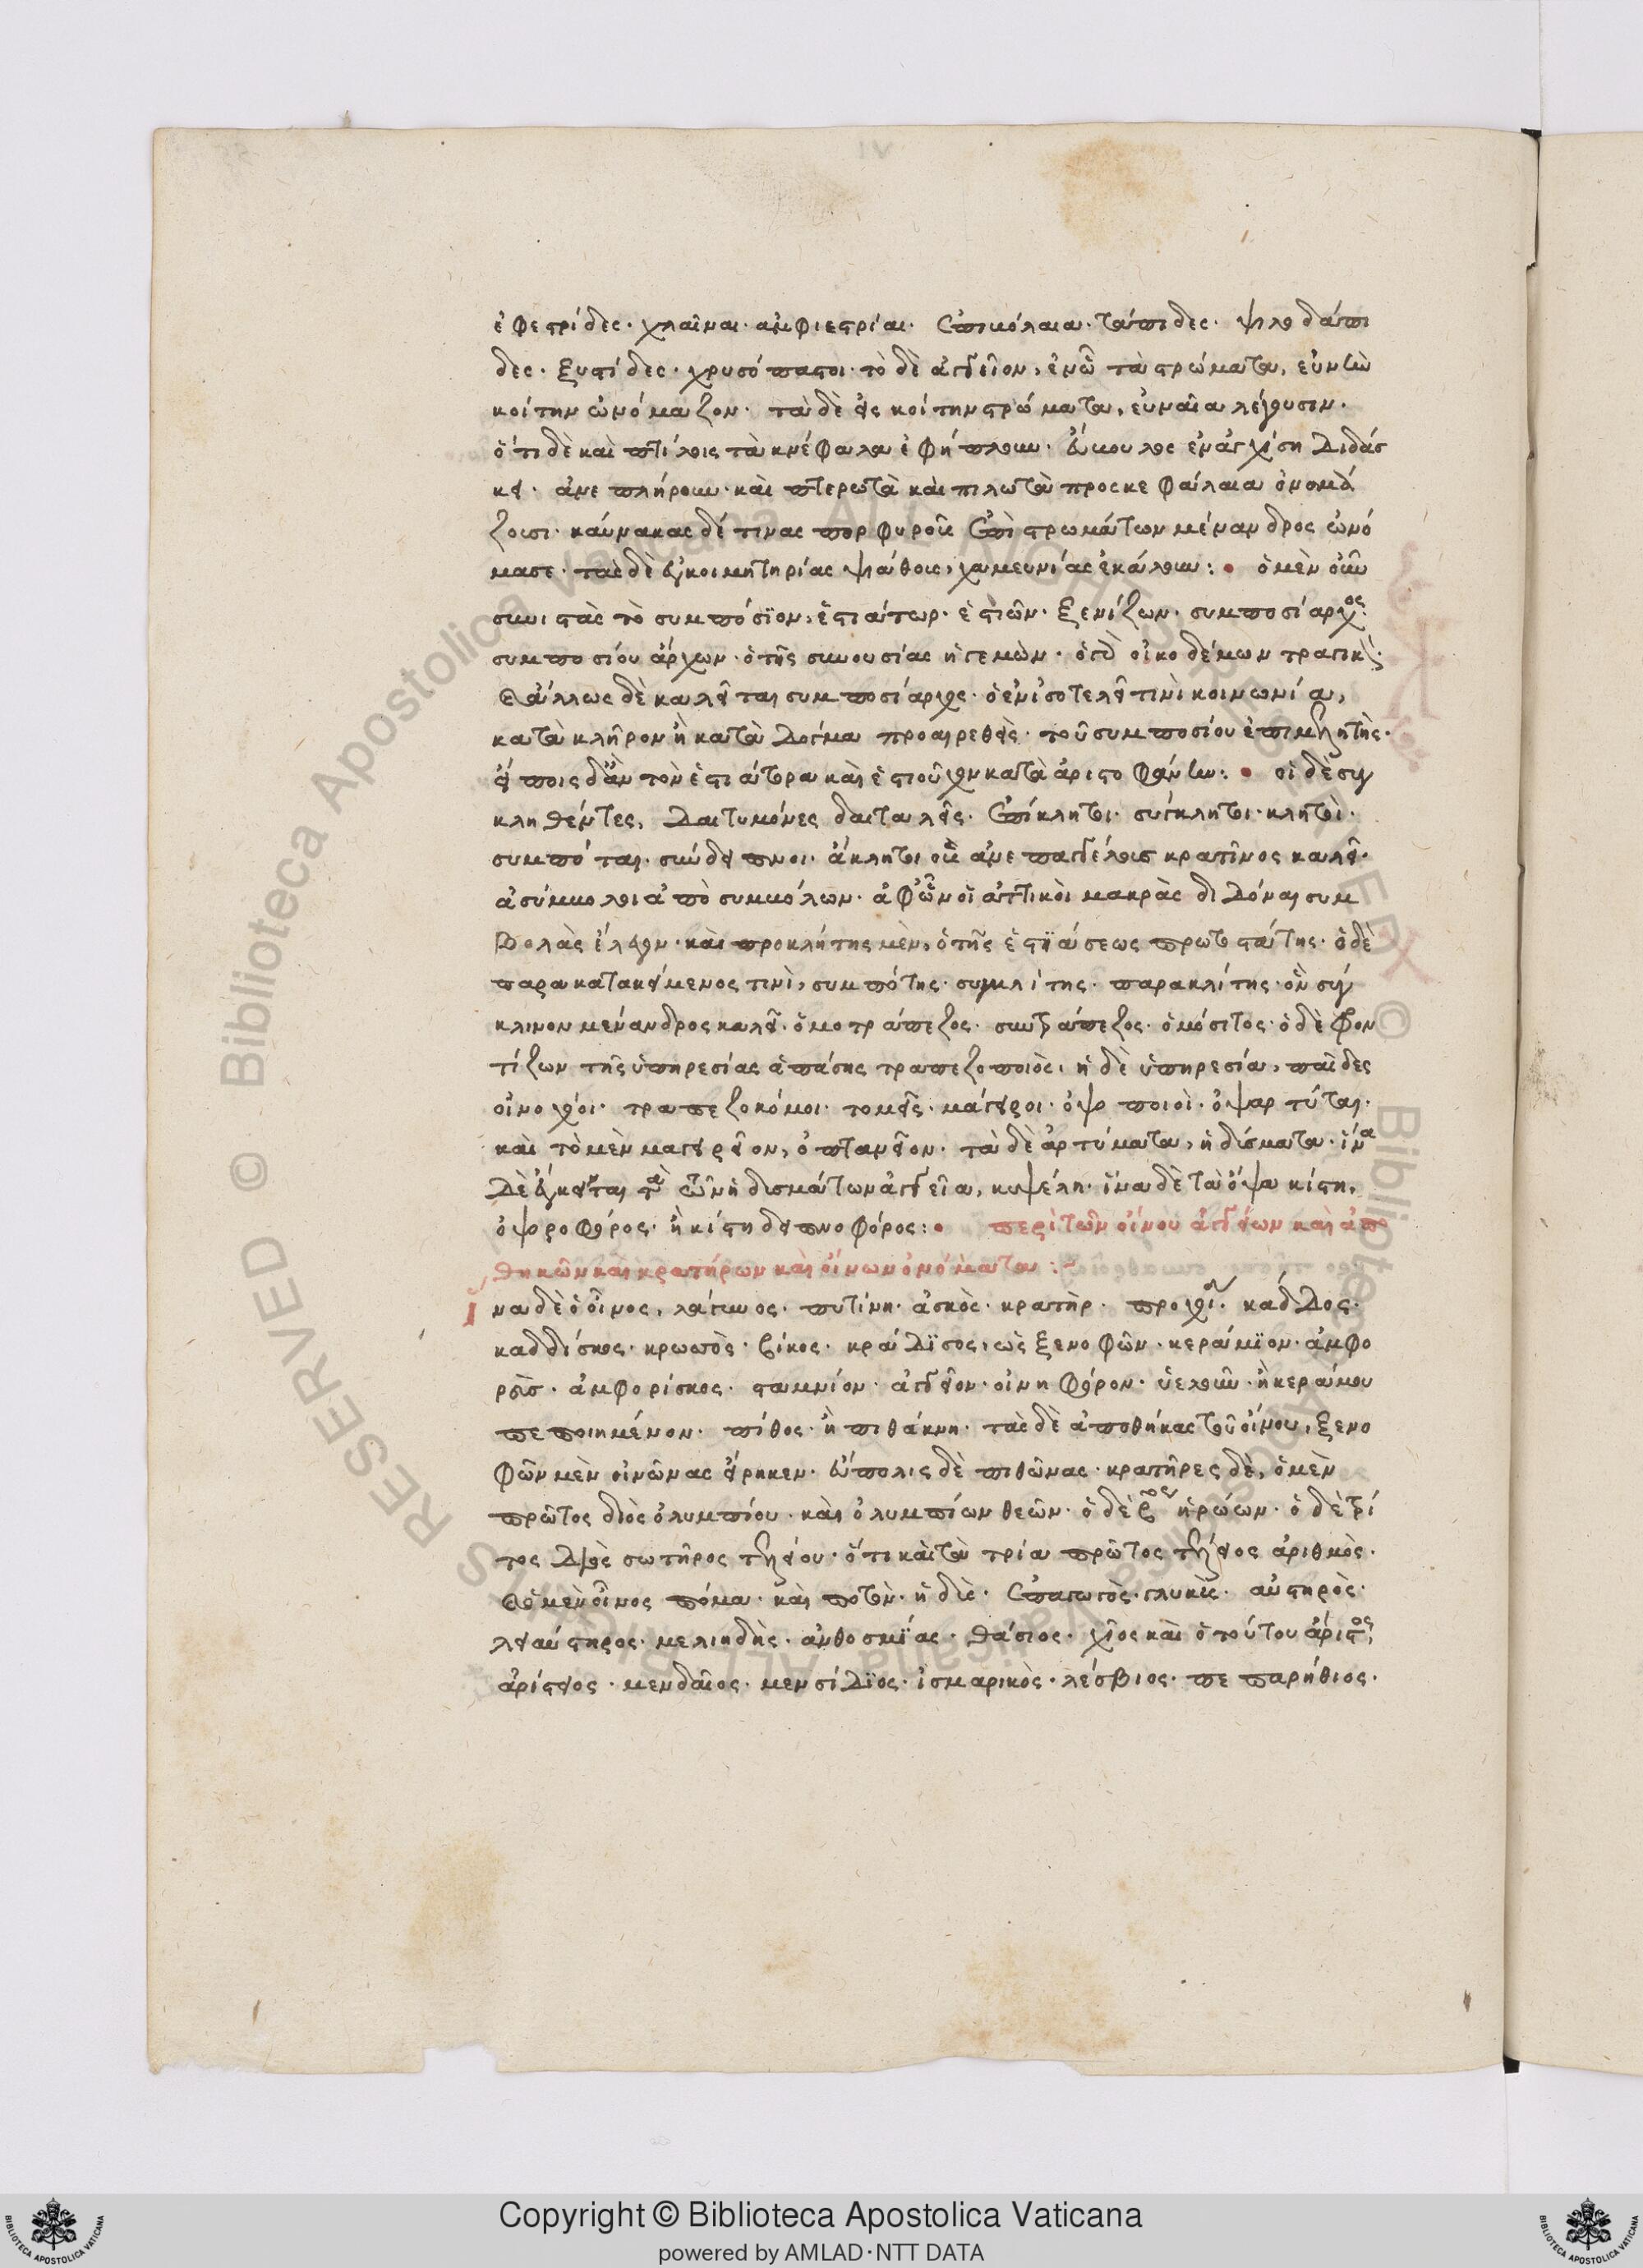 ἐφεστρίδες· χλαῖναι· ἀμφιεστρίαι· ἐπιβόλαια· τάπιδες· ψιλοδάπι
δες· ξυστίδες· χρυσόπαστοι· τὸ δὲ ἀγγεῖον, ἐν ᾧ τὰ στρώματα, εὐνὴν
κοίτην ὠνόμαζον· τὰ δὲ εἰς κοίτην στρώματα, εὐναῖα λέγουσιν·
ὅτι δὲ καὶ πτίλοις τὰ κνέφαλα ἐφήπλουν· εὔβουλος ἐν ἀγχίση διδάσ
κει· ἀνεπλήρουν· καὶ πτερωτὰ καὶ πιλωτὰ προσκεφάλαια ὀνομά
ζουσι· καύνακας δέ τινας πορφυροῦς ἐπὶ στρωμάτων μένανδρος ὠνό
μασε· τὰς δὲ ἐγκοιμητηρίας ψιάθους, χαμευνίας ἐκάλουν: ὁ μὲν οὖν
συνιστὰς τὸ συμπόσϊον, ἑστιάτωρ· ἑστιῶν· ξενίζων· συμποσίαρχος·
συμποσίου ἄρχων· ὁ τῆς συνουσίας ἡγεμὼν· ὁ γὰρ οἰκοδέμων τραγικὸς·
καὶ ἄλλως δὲ καλεῖται συμποσίαρχος· ὁ ἐν ἰσοτελεῖ τινὶ κοινωνία,
κατὰ κλῆρον ἢ κατὰ δόγμα προαιρεθεὶς· τοῦ συμποσίου ἐπιμελητὴς·
εἴποις δ' ἂν τὸν ἑστιάτορα καὶ ἑστιοῦχον κατὰ ἀριστοφάνην: οἱ δὲ συγ
κληθέντες, δαιτυμόνες δαιταλεῖς· ἐπίκλητοι· σύγκλητοι· κλητοὶ·
συμπόται· σύνδειπνοι· ἄκλητοι οὓς ἀνεπαγγέλους κρατῖνος καλεῖ·
ἀσύμβολοι ἀπὸ συμβόλων· ἀφ' ὧν οἱ ἀττικοὶ μακρὰς διδόναι συμ
βολὰς ἔλεγον· καὶ προκλήτης μὲν, ὁ τῆς ἑστϊάσεως πρωτοστάτης· ὁ δὲ
παρακατακείμενος τινὶ, συμπότης· συγκλίτης· παρακλίτης· ὃν σύγ
κλινον μένανδρος καλεῖ· ὁμοτράπεζος· συντράπεζος· ὁμόσιτος· ὁ δὲ φρον
τίζων τῆς ὑπηρεσίας ἁπάσης τραπεζοποιὸς, ἡ δὲ ὑπηρεσία, παῖδες
οἰνοχόοι· τραπεζοκόμοι· τομεῖς· μάγειροι· ὀψοποιοὶ· ὀψαρτύται·
καὶ τὸ μὲν μαγειρεῖον, ὀπτανεῖον· τὰ δὲ ἀρτύματα, ἡδύσματα· ἵνα
δὲ ἔγκειται τὰ τῶν ἡδυσμάτων ἀγγεῖα, κυψέλη· ἵνα δὲ τὰ ὄψα κίστη,
ὀψοφόρος· ἢ κίστη δειπνοφόρος: περὶ τῶν οἴνου ἀγγείων καὶ ἀπο
θηκῶν καὶ κρατήρων καὶ οἴνων ὀνόματα:
ἵνα δὲ ὁ οἶνος, λάγυνος· πυτίνη· ἀσκὸς· κρατὴρ· προχοΐ· κάδδος·
καδδίσκος· κρωσσὸς· βίκος· κράδϊσος, ὡς ξενοφῶν· κεράμϊον· ἀμφο
ρεὺς· ἀμφορίσκος· σταμνίον· ἀγγεῖον· οἰνηφόρον· ὑελοῦν· ἢ κεράμου
πεποιημένον· πίθος· ἢ πιθάκνη· τὰς δὲ ἀποθήκας τοῦ οἴνου, ξενο
φῶν μὲν οἰνῶνας εἴρηκεν· εὔπολις δὲ πιθῶνας· κρατῆρες δὲ, ὁ μὲν
πρῶτος διὸς ὀλυμπίου· καὶ ὀλυμπίων θεῶν· ὁ δὲ βος ἡρώων· ὁ δὲ τρί
τος διὸς σωτῆρος τελείου· ὅτι καὶ τὰ τρία πρῶτος τέλειος ἀριθμὸς·
καὶ ὁ μὲν οἶνος πόμα· καὶ ποτὸν· ἡδὺς· ἐπαγωγὸς· γλυκὺς· αὐστηρὸς·
λειαύστηρος· μελιηδὴς· ἀνθοσμΐας· θάσιος· χῖος καὶ ὁ τούτου ἄριστος,
ἀρίστειος· μενδαῖος· μενσίδϊος· ἰσμαρικὸς· λέσβιος· πεπαρήθιος·
Copyright © Biblioteca Apostolica Vaticana
powered by AMLAD·NTT DATA